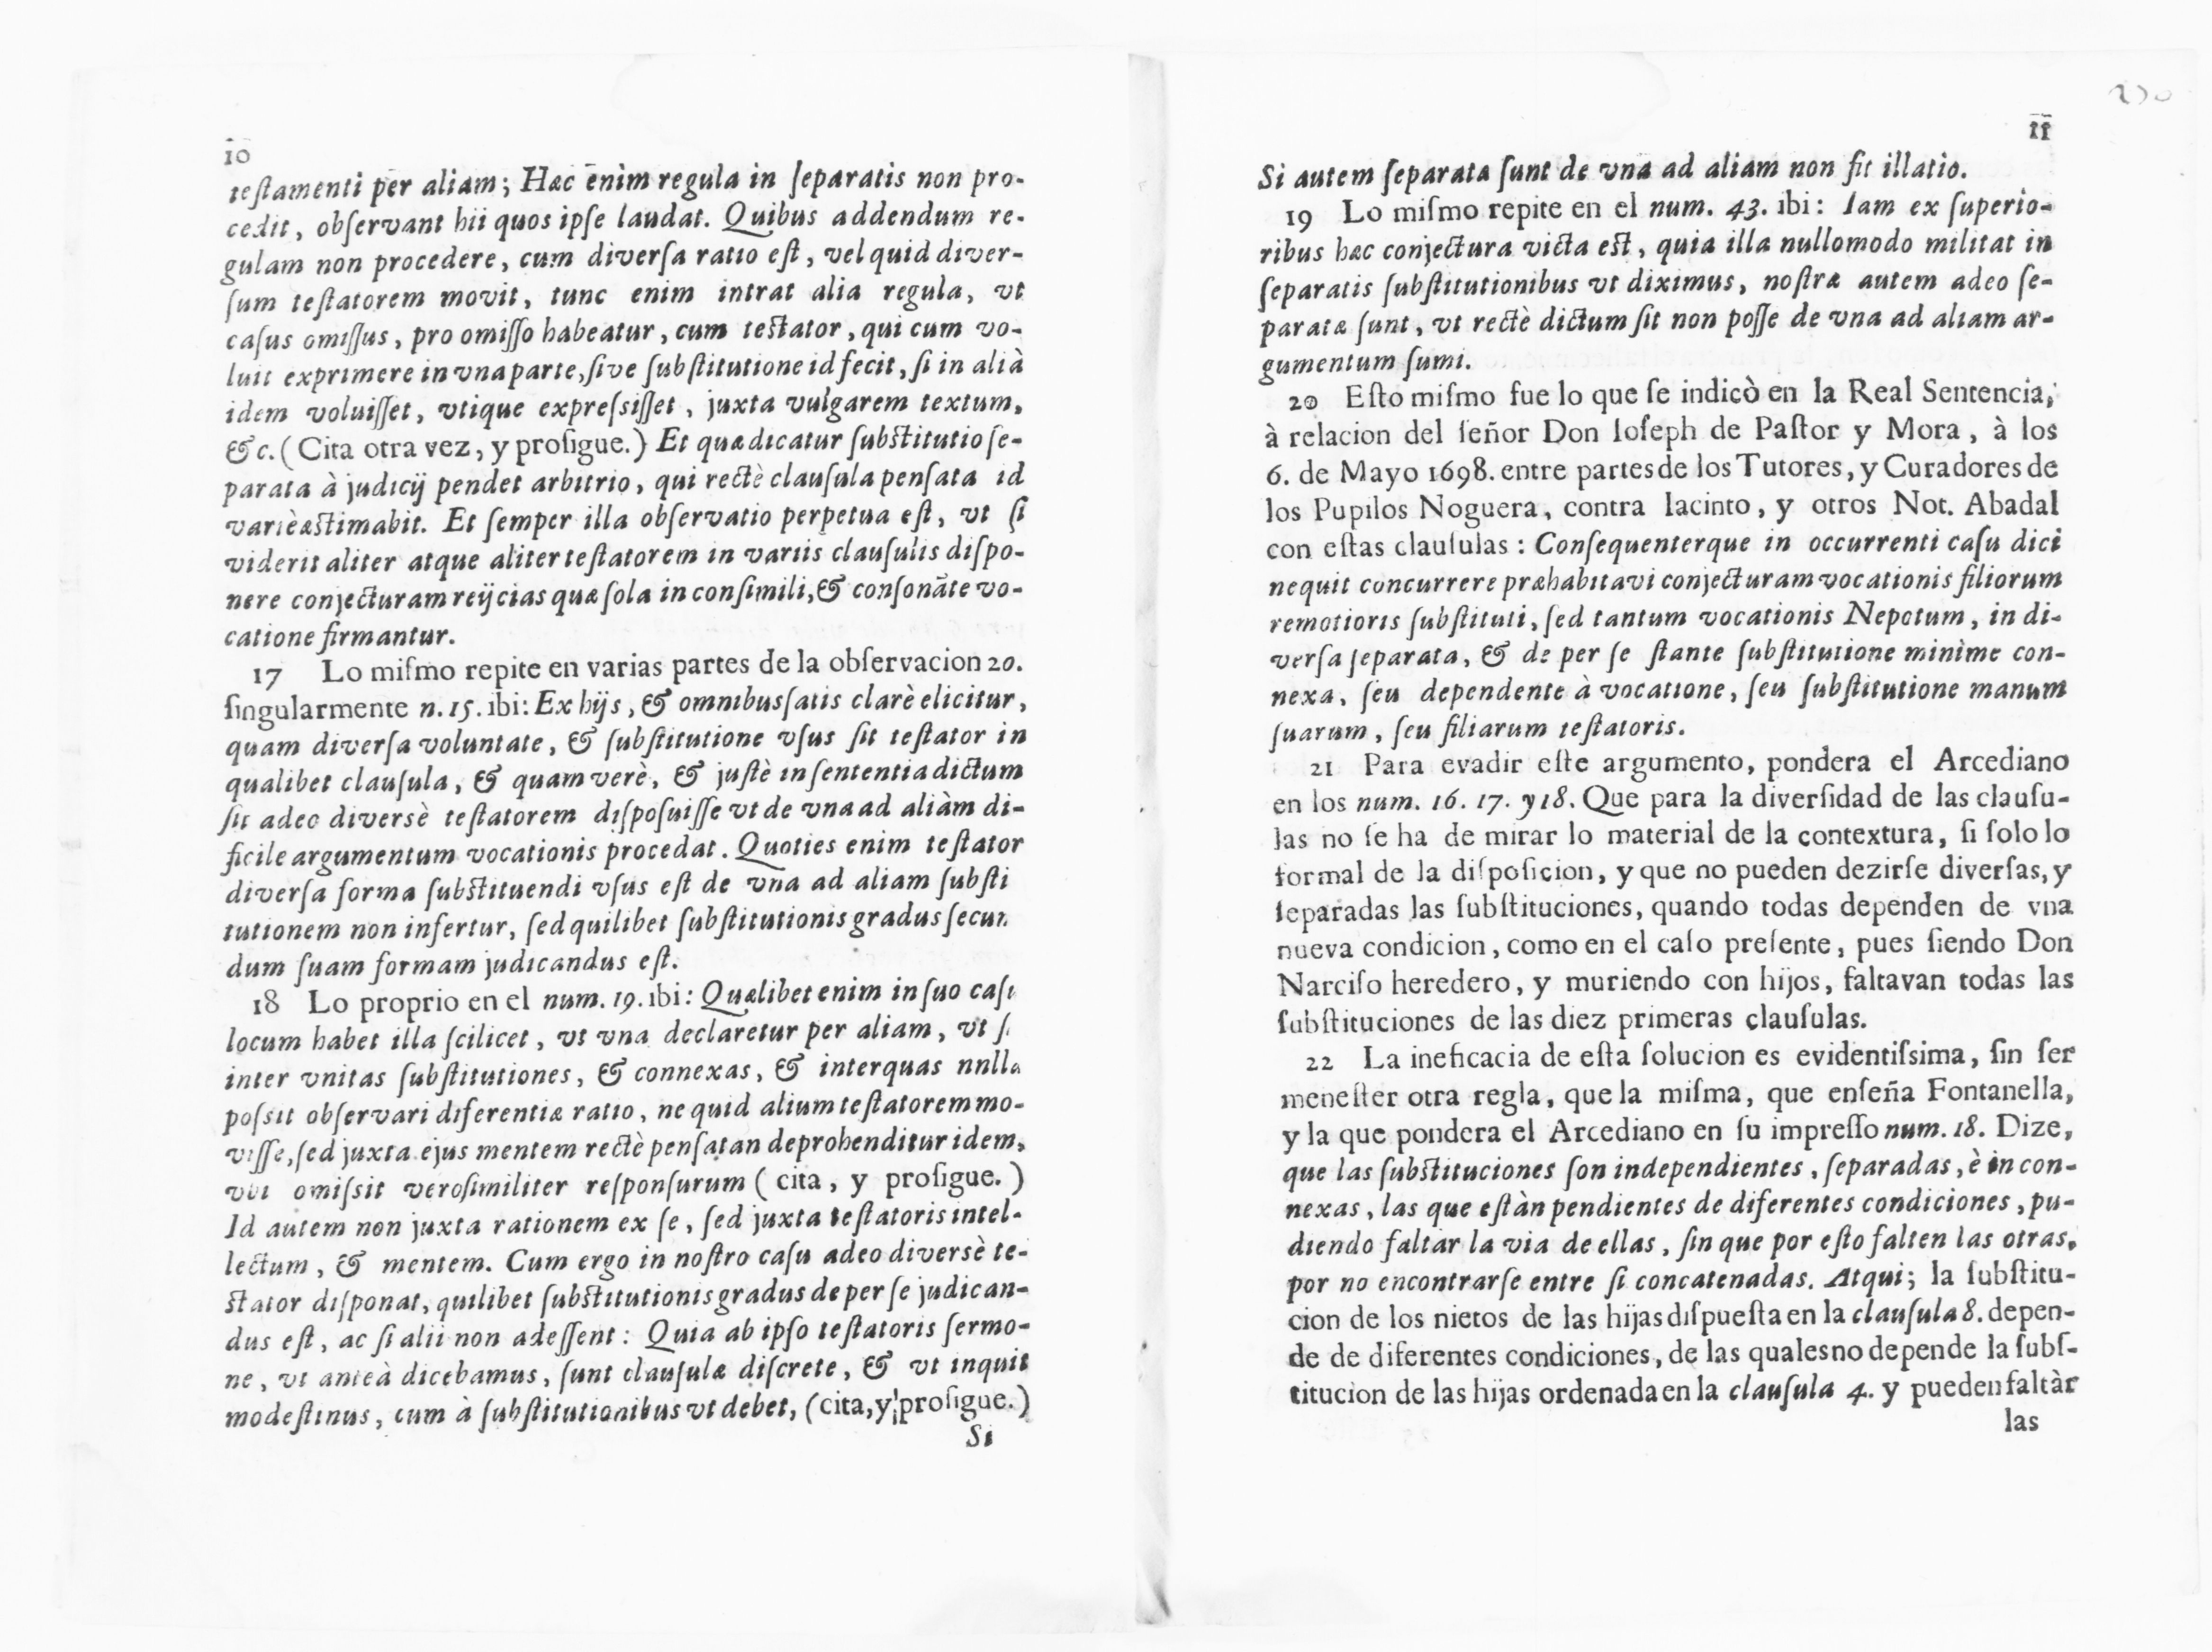 10
teſtamenti per aliam; Hæc enìm regula in ſeparatis non pro-
cedit, obſervant hii quos ipſe laudat. Quibus addendum re-
gulam non procedere, cum diverſa ratio eſt, vel quid diver-
ſum teſtatorem movit, tunc enim intrat alia regula, vt
caſus omiſſus, pro omiſſo habeatur, cum teſtator, qui cum vo-
luit exprimere in vna parte, ſive ſubſtitutione id fecit, ſi in alià
idem voluiſſet, vtique expreſsiſſet, juxta vulgarem textum,
& c. (Cita otra vez, y proſigue.) Et quæ dicatur ſubſtitutio ſe-
parata à judicij pendet arbitrio, qui rectè clauſula penſata id
variè æstimabit. Et ſemper illa obſervatio perpetua eſt, vt ſi
viderit aliter atque aliter teſtatorem in variis clauſulis diſpo-
nere conjecturam reijcias quæ ſola in conſimili, & conſonãte vo-
catione firmantur.
17 Lo miſmo repite en varias partes de la obſervacion 20.
ſingularmente n. 15. ibi: Ex hijs, & omnibus ſatis clarè elicitur,
quam diverſa voluntate, & ſubſtitutione vſus ſit teſtator in
qualibet clauſula, & quam verè, & juſtè in ſententia dictum
ſit adeo diversè teſtatorem diſpoſuiſſe vt de vna ad aliàm di-
ficile argumentum vocationis procedat. Quoties enim teſtator
diverſa forma ſubſtituendi vſus eſt de vna ad aliam ſubſti
tutionem non infertur, ſed quilibet ſubſtitutionis gradus ſecun
dum ſuam formam judicandus eſt.
18 Lo proprio en el num. 19. ibi: Quælibet enim in ſuo caſu
locum habet illa ſcilicet, vt vna declaretur per aliam, vt ſi
inter vnitas ſubſtitutiones, & connexas, & interquas nnlla
poſsit obſervari diferentiæ ratio, ne quid alium teſtatorem mo-
viſſe, ſed juxta ejus mentem rectè penſatan deprohenditur idem,
vbi omiſsit veroſimiliter reſponſurum (cita, y proſigue.)
Id autem non juxta rationem ex ſe, ſed juxta teſtatoris intel-
lectum, & mentem. Cum ergo in noſtro caſu adeo diversè te-
ſtator diſponat, quilibet ſubſtitutionis gradus de per ſe judican-
dus eſt, ac ſi alii non adeſſent: Quia ab ipſo teſtatoris ſermo-
ne, vt anteà dicebamus, ſunt clauſulæ diſcrete, & vt inquit
modeſtinus, cum à ſubſtitutionibus vt debet, (cita, y proſigue.)
Si
11
Si autem ſeparata ſunt de vna ad aliam non fit illatio.
19 Lo miſmo repite en el num. 43. ibi: Iam ex ſuperio-
ribus hæc conjectura victa eſt, quia illa nullomodo militat in
ſeparatis ſubſtitutionibus vt diximus, noſtræ autem adeo ſe-
paratæ ſunt, vt rectè dictum ſit non poſſe de vna ad aliam ar-
gumentum ſumi.
20 Eſto miſmo fue lo que ſe indicò en la Real Sentencia,
à relacion del ſeñor Don Ioſeph de Paſtor y Mora, à los
6. de Mayo 1698. entre partes de los Tutores, y Curadores de
los Pupilos Noguera, contra Iacinto, y otros Not. Abadal
con eſtas clauſulas: Conſequenterque in occurrenti caſu dici
nequit concurrere præhabitavi conjecturam vocationis filiorum
remotioris ſubſtituti, ſed tantum vocationis Nepotum, in di-
verſa ſeparata, & de per ſe ſtante ſubſtitutione minìme con-
nexa, ſeu dependente à vocatione, ſeu ſubſtitutione manum
ſuarum, ſeu filiarum teſtatoris.
21 Para evadir eſte argumento, pondera el Arcediano
en los num. 16. 17. y 18. Que para la diverſidad de las clauſu-
las no ſe ha de mirar lo material de la contextura, ſi ſolo lo
formal de la diſpoſicion, y que no pueden dezirſe diverſas, y
ſeparadas las ſubſtituciones, quando todas dependen de vna
nueva condicion, como en el caſo preſente, pues ſiendo Don
Narciſo heredero, y muriendo con hijos, faltavan todas las
ſubſtituciones de las diez primeras clauſulas.
22 La ineficacia de eſta ſolucion es evidentiſsima, ſin ſer
meneſter otra regla, que la miſma, que enſeña Fontanella,
y la que pondera el Arcediano en ſu impreſſo num. 18. Dize,
que las ſubſtituciones ſon independientes, ſeparadas, è incon-
nexas, las que eſtàn pendientes de diferentes condiciones, pu-
diendo faltar la via de ellas, ſin que por eſto falten las otras,
por no encontrarſe entre ſi concatenadas. Atqui; la ſubſtitu-
cion de los nietos de las hijas diſpueſta en la clauſula 8. depen-
de de diferentes condiciones, de las quales no depende la ſubſ-
titucion de las hijas ordenada en la clauſula 4. y pueden faltàr
las